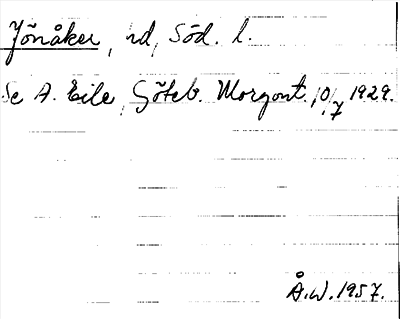 Jönåker, hd, Söd. l.
Se A. Eile, Göteb. Morgont. 10/7 1929.
Å.W. 1957.